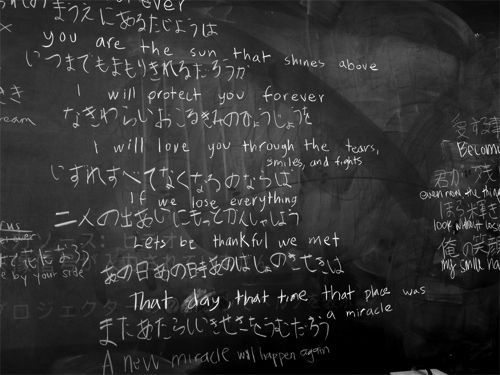 forever
まうえにあるたいようは
you are the sun that shines above
いつまでもまもりきれるだろうか
I will protect you forever
なきわらいおこるきみのひょうじょうを
I will love you through the tears,
smiles, and fights
いずれすべてなくなるのならば
If we lose everything
二人の出あいにもっとかんしゃしよう
Lets be thankful we met
あの日あの時あのばしょのきせきは
That day, that time that place was
a miracle
またあたらしいきせきをうむだろう
A new miracle will happen again
by your side
愛する
君が
俺の
my smile